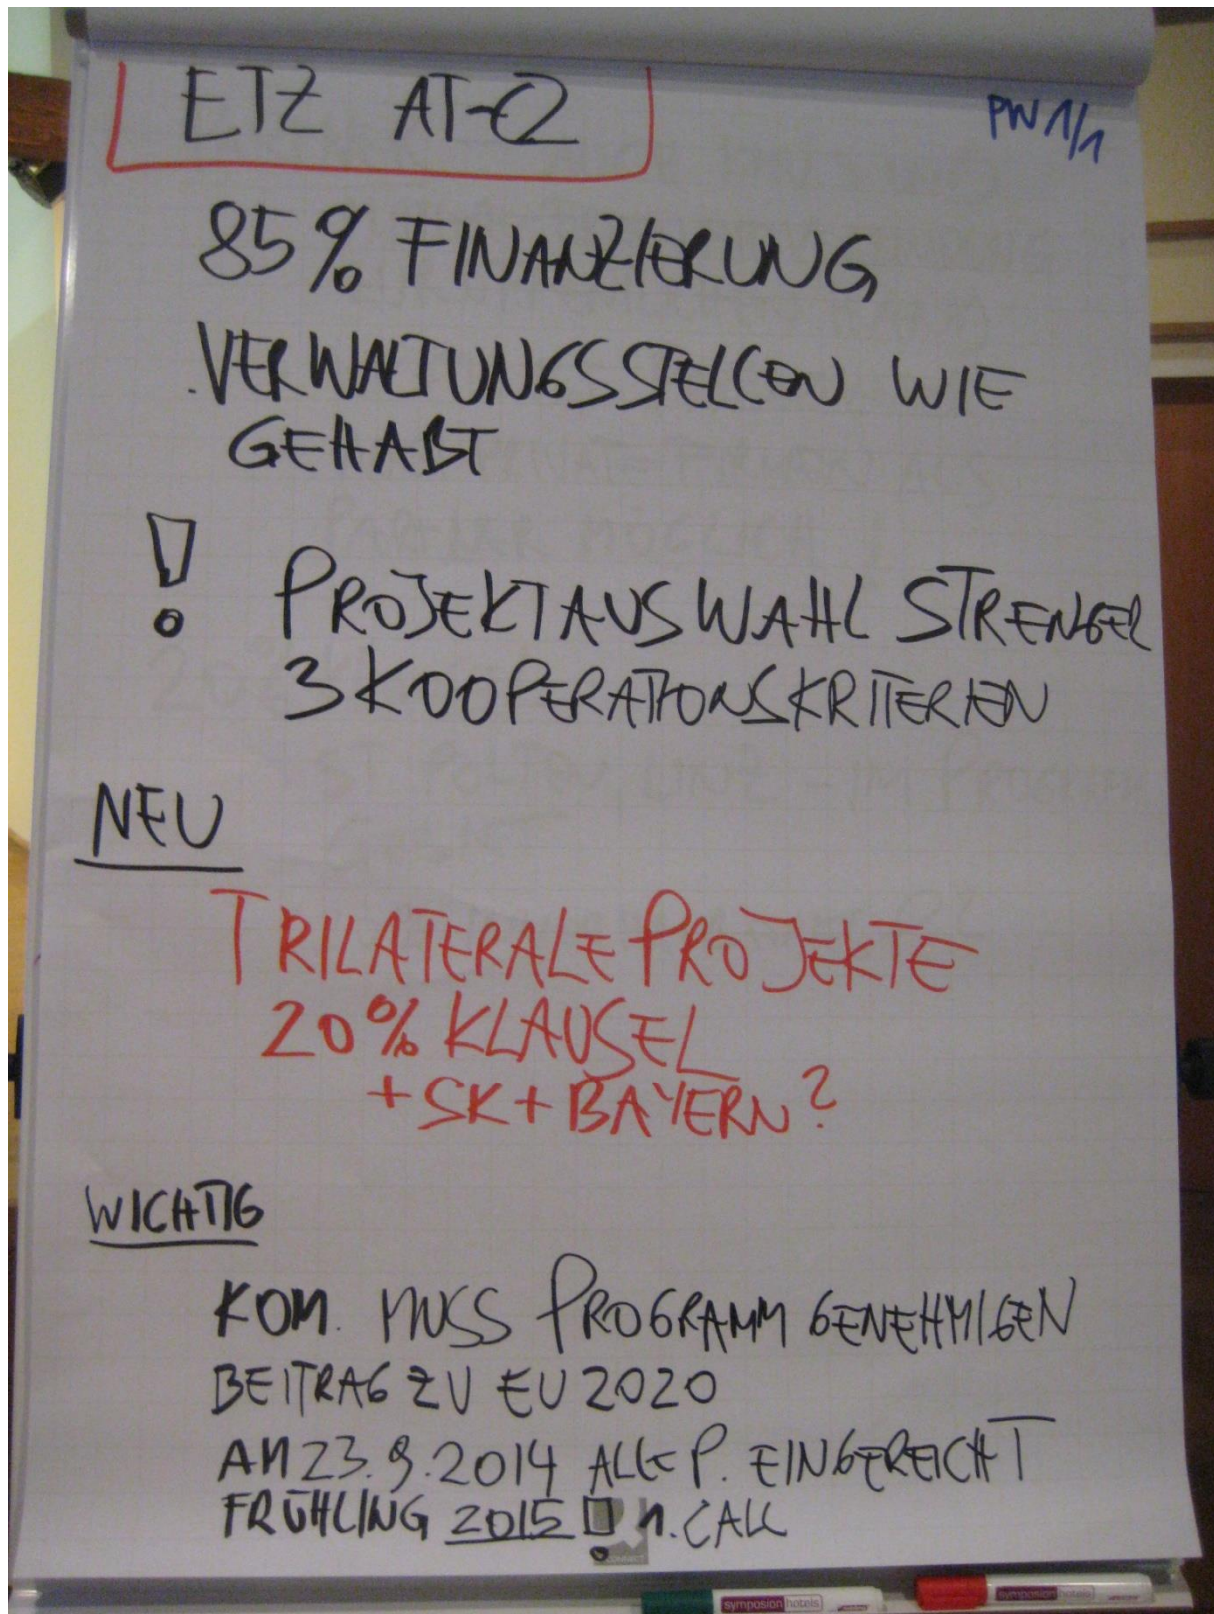 ETZ AT-CZ
PW 1/1
85% FINANZIERUNG
VERWALTUNGSSTELLEN WIE
GEHABT
! PROJEKTAUSWAHL STRENGER
3 KOOPERATIONSKRITERIEN
NEU
TRILATERALE PROJEKTE
20% KLAUSEL
+ SK + BAYERN?
WICHTIG
KOM. MUSS PROGRAMM GENEHMIGEN
BEITRAG ZU EU 2020
AM 23.9.2014 ALLE P. EINGEREICHT
FRÜHLING 2015 ! 1. CALL
symposion hotels
symposion hotels